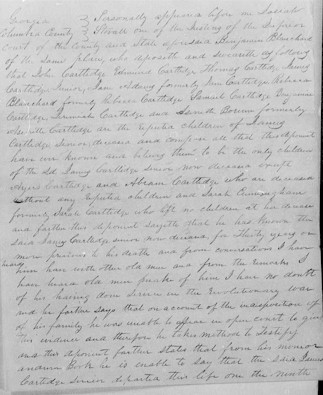 Georgia } Personally appeared before me
Columbia County } one of the Justices of the Inferior
Court of the County and State aforesaid Benjamin Blanchard
of the same place, who deposeth and
that John Cartledge Edmund Cartledge Thomas Cartledge James
Cartledge Junior, Ann formerly Ann Cartledge Rebecca
Blanchard formerly Rebecca Cartledge Samuel Cartledge
Cartledge Jeremiah Cartledge and formerly
Cartledge are the reputed children of James
Cartledge Senior deceased and that this deponent
have ever known and believe them to be the only children
of the sd. James Cartledge Senior now deceased except
Cartledge and Abram Cartledge who are deceased
without any reputed children and Sarah Cunningham
formerly Sarah Cartledge who left no children at her decease
and farther this deponent sayeth that he has known the
said James Cartledge Senior now deceased, for Thirty years or
more previous to his death and from conversations I have
heard him have with other old men and from the remarks I
have heard old men make of him I have no doubt
of his having done service in the revolutionary war
and he farther says that on account of the indisposition of
of his family he was unable to appear in open court to give
this evidence and therefore he takes method to Testify
and this deponent further states that from his
Book he is able to say that the said James
Cartledge Senior departed this life on the Ninth